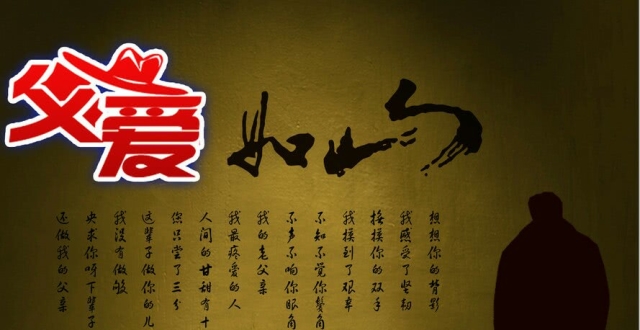 父爱
如山
想想你的背影
我感受了坚韧
抚摸你的双手
我摸到了艰辛
不知不觉你鬓角
不声不响你眼角
我的老父亲
我最疼爱的人
人间的甘甜有十
您只尝了三分
这辈子做你的儿
我没有做够
央求你呀下辈子
还做我的父亲